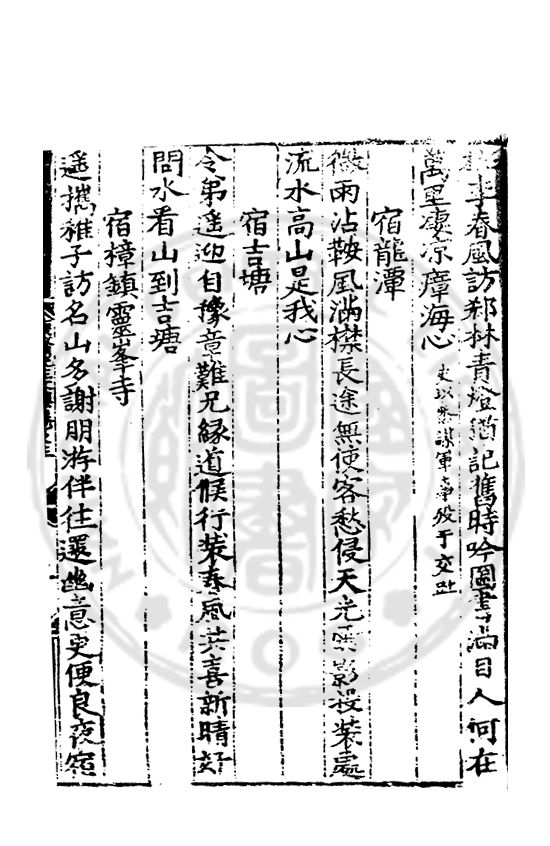 李春風訪郄林青燈猶記舊時吟圖書滿目人何在
萬里淒凉瘴海心 史以叅謀軍事歿于交趾
宿龍潭
微雨沾鞍風滿襟長途無使客愁侵天光雲影投裝處
流水高山是我心
宿吉塘
令弟遥迎自豫章難兄緣道候行裝春風共喜新晴好
問水看山到吉塘
宿樟鎮靈峯寺
遥攜稚子訪名山多謝朋游伴往還幽意更便良夜宿